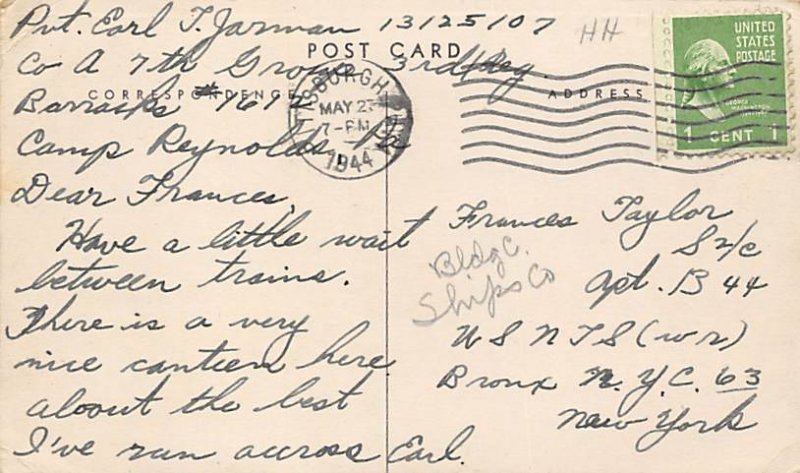 Pvt. Earl T. Jarman 13125107
HH
POST CARD
Co A 7th Group 3rd Reg.
CORRESPONDENCE
ADDRESS
Barracks #
Camp Reynolds, Pa
MAY 23
7-PM
1944
UNITED
STATES
POSTAGE
1 CENT 1
Dear Frances,
Have a little wait
between trains.
There is a very
nice canteen here
aboout the best
I've run across Earl.
Frances Taylor
S 2/c
Bldg C.
Ships Co
Apt. B 44
U S N T S (w r)
Bronx N.Y.C. 63
New York